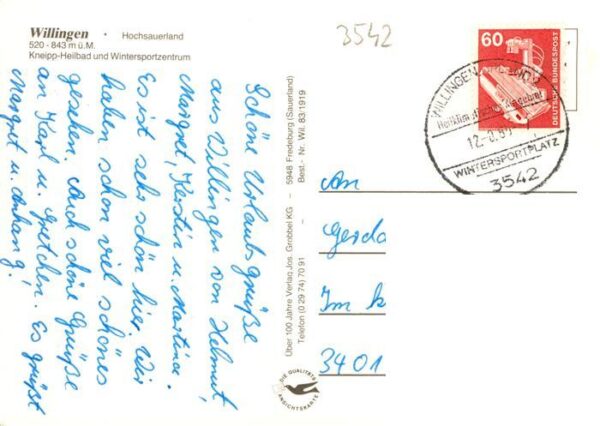 Willingen • Hochsauerland
520 - 843 m ü.M.
Kneipp-Heilbad und Wintersportzentrum
3542
Schöne Urlaubsgrüße
aus Willingen von Helmut,
Margret, Kerstin u. Martina.
Es ist sehr schön hier. Wir
haben schon viel schönes
gesehen. Auch schöne Grüße
an Karl u. Gretchen. Es grüßt
Margret u. Anhang!
Über 100 Jahre Verlag Jos. Grobbel KG — 5948 Fredeburg (Sauerland)
Telefon (0 29 74) 70 91 - Best.- Nr. Wil. 83:1919
DIE QUALITÄTS
ANSICHTSKARTE
60
DEUTSCHE BUNDESPOST
WILLINGEN
WINTERSPORTPLATZ
3542
An
Gerda
Im k
3401